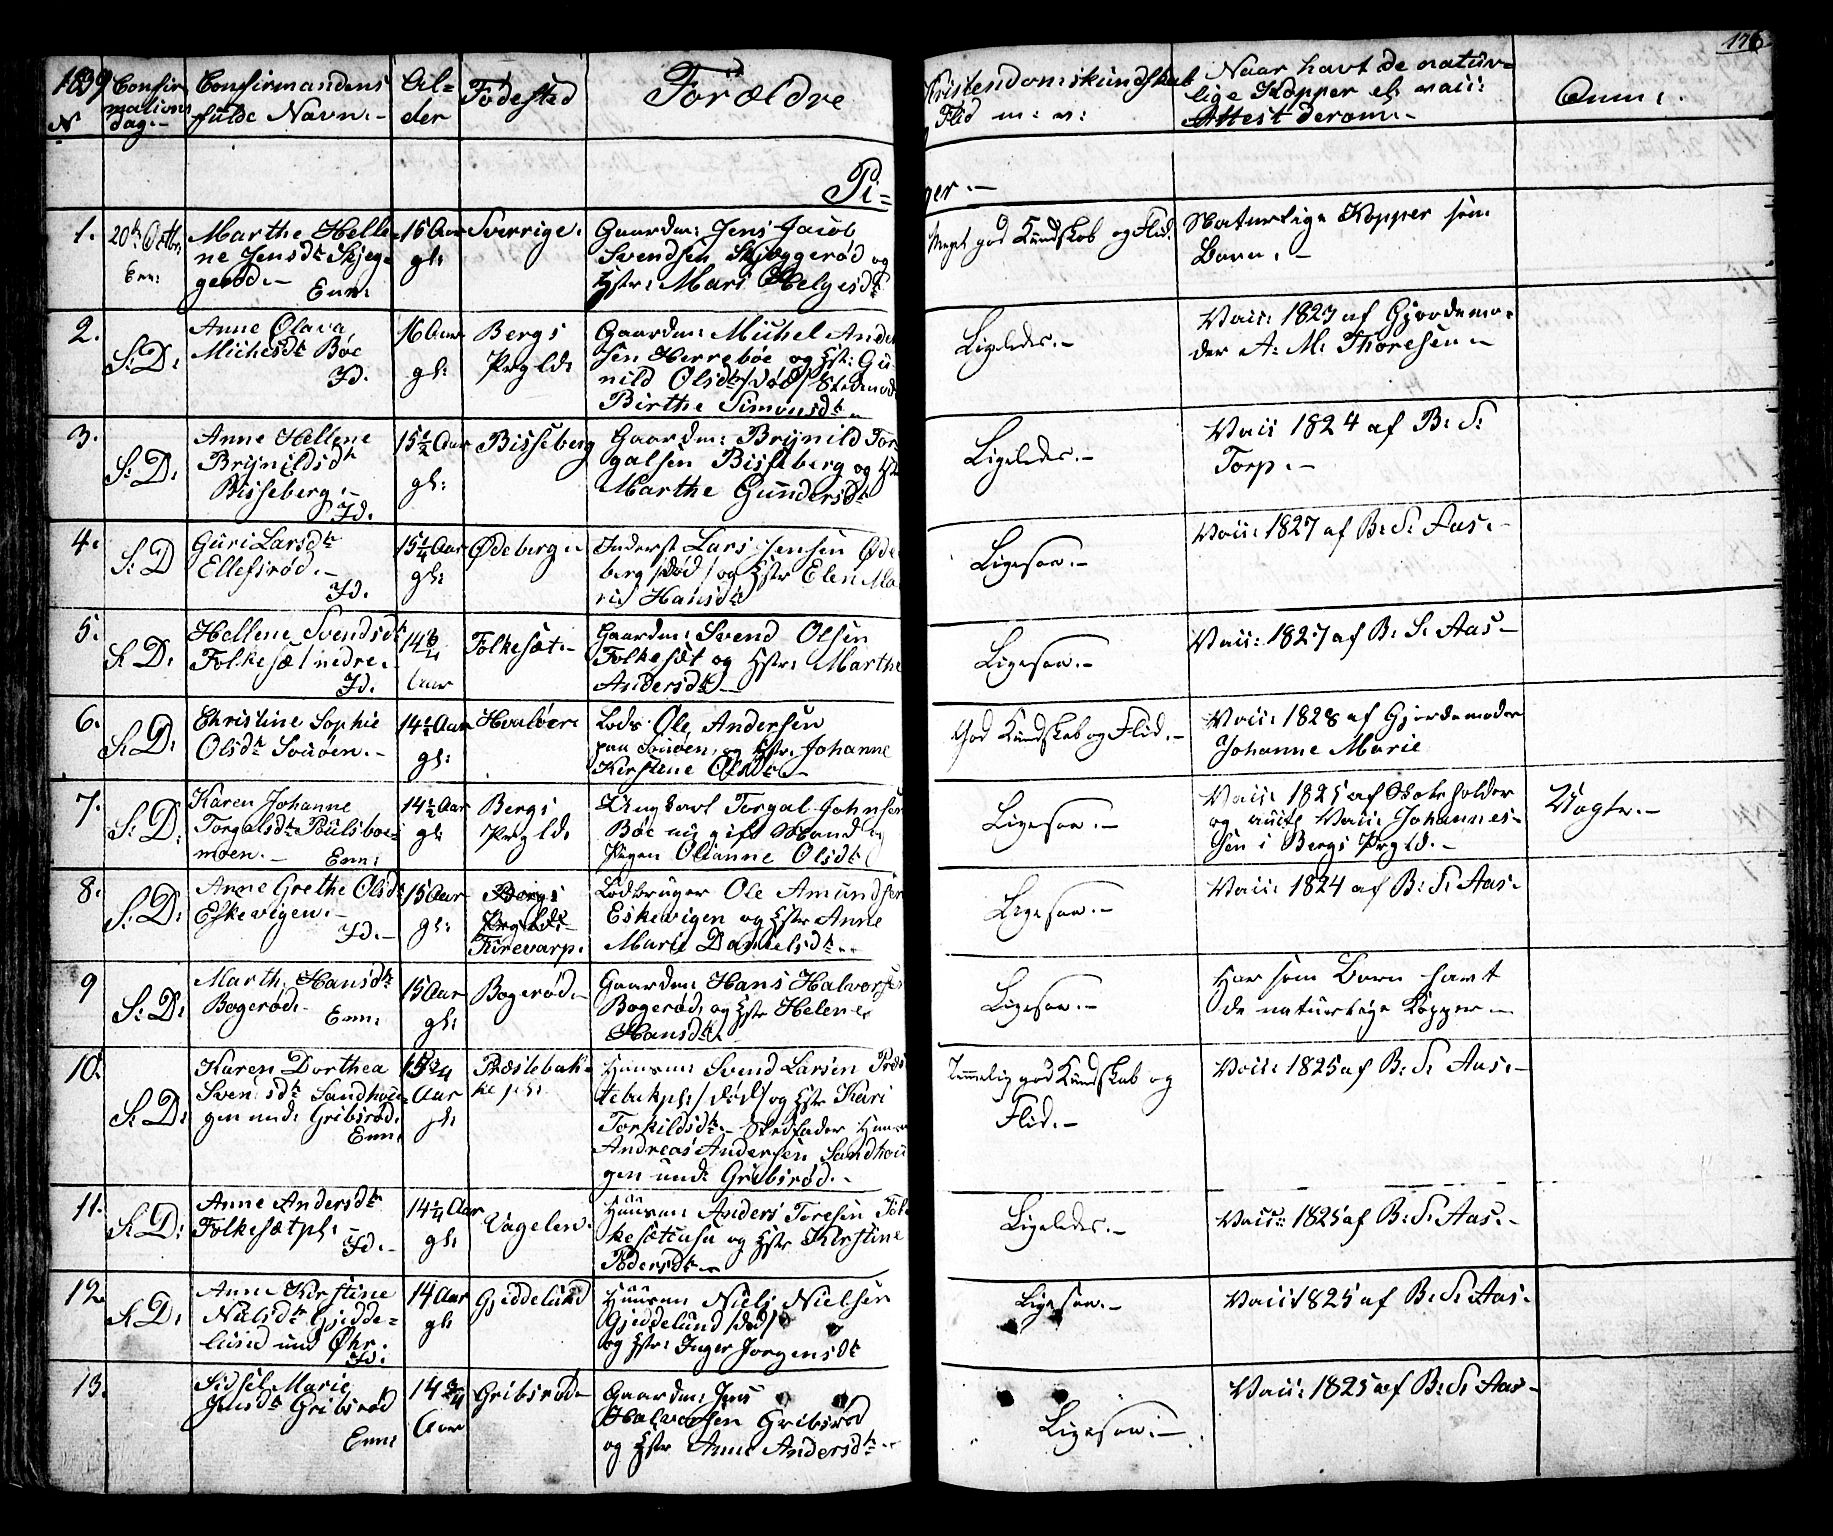 176
1839
N
Confir
mations
dag.-
Confirmandens
fulde Navn.-
Al-
der
Fødested
Forældre
Kristendomskundskab
Flid m: v:
Naar havt de natur-
lige Kopper el vaii:
Attest derom.-
Anm:
Pi-
ger.-
1.
20de Octbr
Enn:
Marthe Helle
ne Jensdtr Skjeg-
gerød.-
Enn:
15 Aar
gl:
Sverrige.
Gaardm: Jens Jacob
Svendsen Skjeggerød og
Hstr: Mari Helgesdtr
Meget god Kundskab og Flid.
Naturlige Kopper som
Barn.-
2.
S: D:
Anne Olava
Michelsdtr Bøe
Id.
16 Aar
gl:
Bergs
Prgld:
Gaardm: Michel Ander
sen Herrebøe og Hst: Gu-
nild Olsdtr /død/ Stedmod
Birthe Simonsdtr
Ligeledes.-
Vaii: 1827 af Gjordemo-
der A. M. Thoresen.-
3.
S: D:
Anne Hellene
Brynildsdtr
Bisseberg.-
Id.
15½ Aar
gl:
Bisseberg
Gaardm: Brynild Tor
galsen Bisseberg og Hst
Marthe Gundersdtr
Ligeledes.-
Vaii 1824 af B. S.
Torp.-
4.
S: D
Guri Larsdtr
Ellefsrød.-
Id.
15¼ Aar
gl:
Ødeberg.
Inderst Lars Jensen Øde
berg /død/ og Hstr Elen Ma
rie Hansdtr
Ligesaa.-
Vaii: 1827 af B. S. Aas.-
5.
S. D:
Hellene Svendsdtr
Folkesæt nedre.
Id.
14
Aar
Folkesæt.-
Gaardm: Svend Olsen
Folkesæt og Hstr: Marthe
Andersdtr.-
Ligesaa.-
Vaii: 1827 af B. S. Aas-
6.
S. D:
Christine Sophie
Olsdtr Souøen.-
14½ Aar
gl:
Hvaløer:
Lods Ole Andersen
paa Souøen, og Hstr. Johanne
Kirstene Olsdtr-
God Kundskab og Flid.-
Vaii: 1828 af Gjordemoder
Johanne Marie
7.
S. D:
Karen Johanne
Torgalsdtr Poulsboe-
moen.-
Enn:
14½ Aar
gl:
Bergs
Prgld:
Ungkarl Torgal Johnsen
Bøe nu gift Mand og
Pigen Olianne Olsdtr
Ligesaa.-
Vaii: 1825 af Skoleholder
og autl Vaii: Johannes-
sen i Bergs Prgld.-
Uægte.-
8.
S: D:
Anne Grethe Olsdtr
Eskevigen.-
Id.-
15 Aar
gl:
Bergs
Prgld:
Tirevarp.
Lodbruger Ole Amundsen
Eskevigen og Hstr Anne
Marie Danielsdtr.
Ligesaa.-
Vaii: 1824 af B. S. Aas.
9
S: D:
Marth. Hansdtr
Bogerød.
Enn:
15 Aar
gl:
Bogerød.-
Gaardm: Hans Halvorsen
Bogerød, og Hstr Helene
Hansdtr
Ligesaa.-
Har som Barn havt
de naturlige Kopper.-
10.
S: D:
Karen Dorthea
Svensdtr Sandhou-
gen und: Gribsrød.
Enn:
15¾
Aar
gl:
Præstebak-
ke pl:
Huusm: Svend Larsen Præs
tebakpl: /død/ og Hstr Kari
Torkildsdtr.- Stedfader Huusm
Andreas Andersen Sandhou
gen und: Gribsrød.-
Temmelig god Kundskab og
Flid.-
Vaii: 1825 af B. S. Aas.-
11.
S. D:
Anne Andersdtr
Folkesætpl:-
Id.-
14¼ Aar
gl:
Vagelen.
Huusm: Anders Toresen Fol
og Hstr Kirstine
Pedersdtr
Ligeledes.-
Vaii: 1825 af B. S. Aas.-
12.
S. D:
Anne Kirstine
Nielsdtr Gjedde-
lund und Øhr.
Id:
14 Aar
gl:
Gjeddelund
Huusm Niels Nielsen
Gjeddelund /død/
og Hstr: Inger Jorgensdtr
Ligesaa.-
Vaii 1825 af B. S. Aas.
13.
Sidsel Marie
Jensdtr Gribsrød
Enn:
14¾
Aar
Gribsrød-
Gaardm: Jens
Halvorsen Gribsrød
og Hstr Anne Andersdtr.
Ligesaa.-
Vaii: 1825 af B. S. Aas-